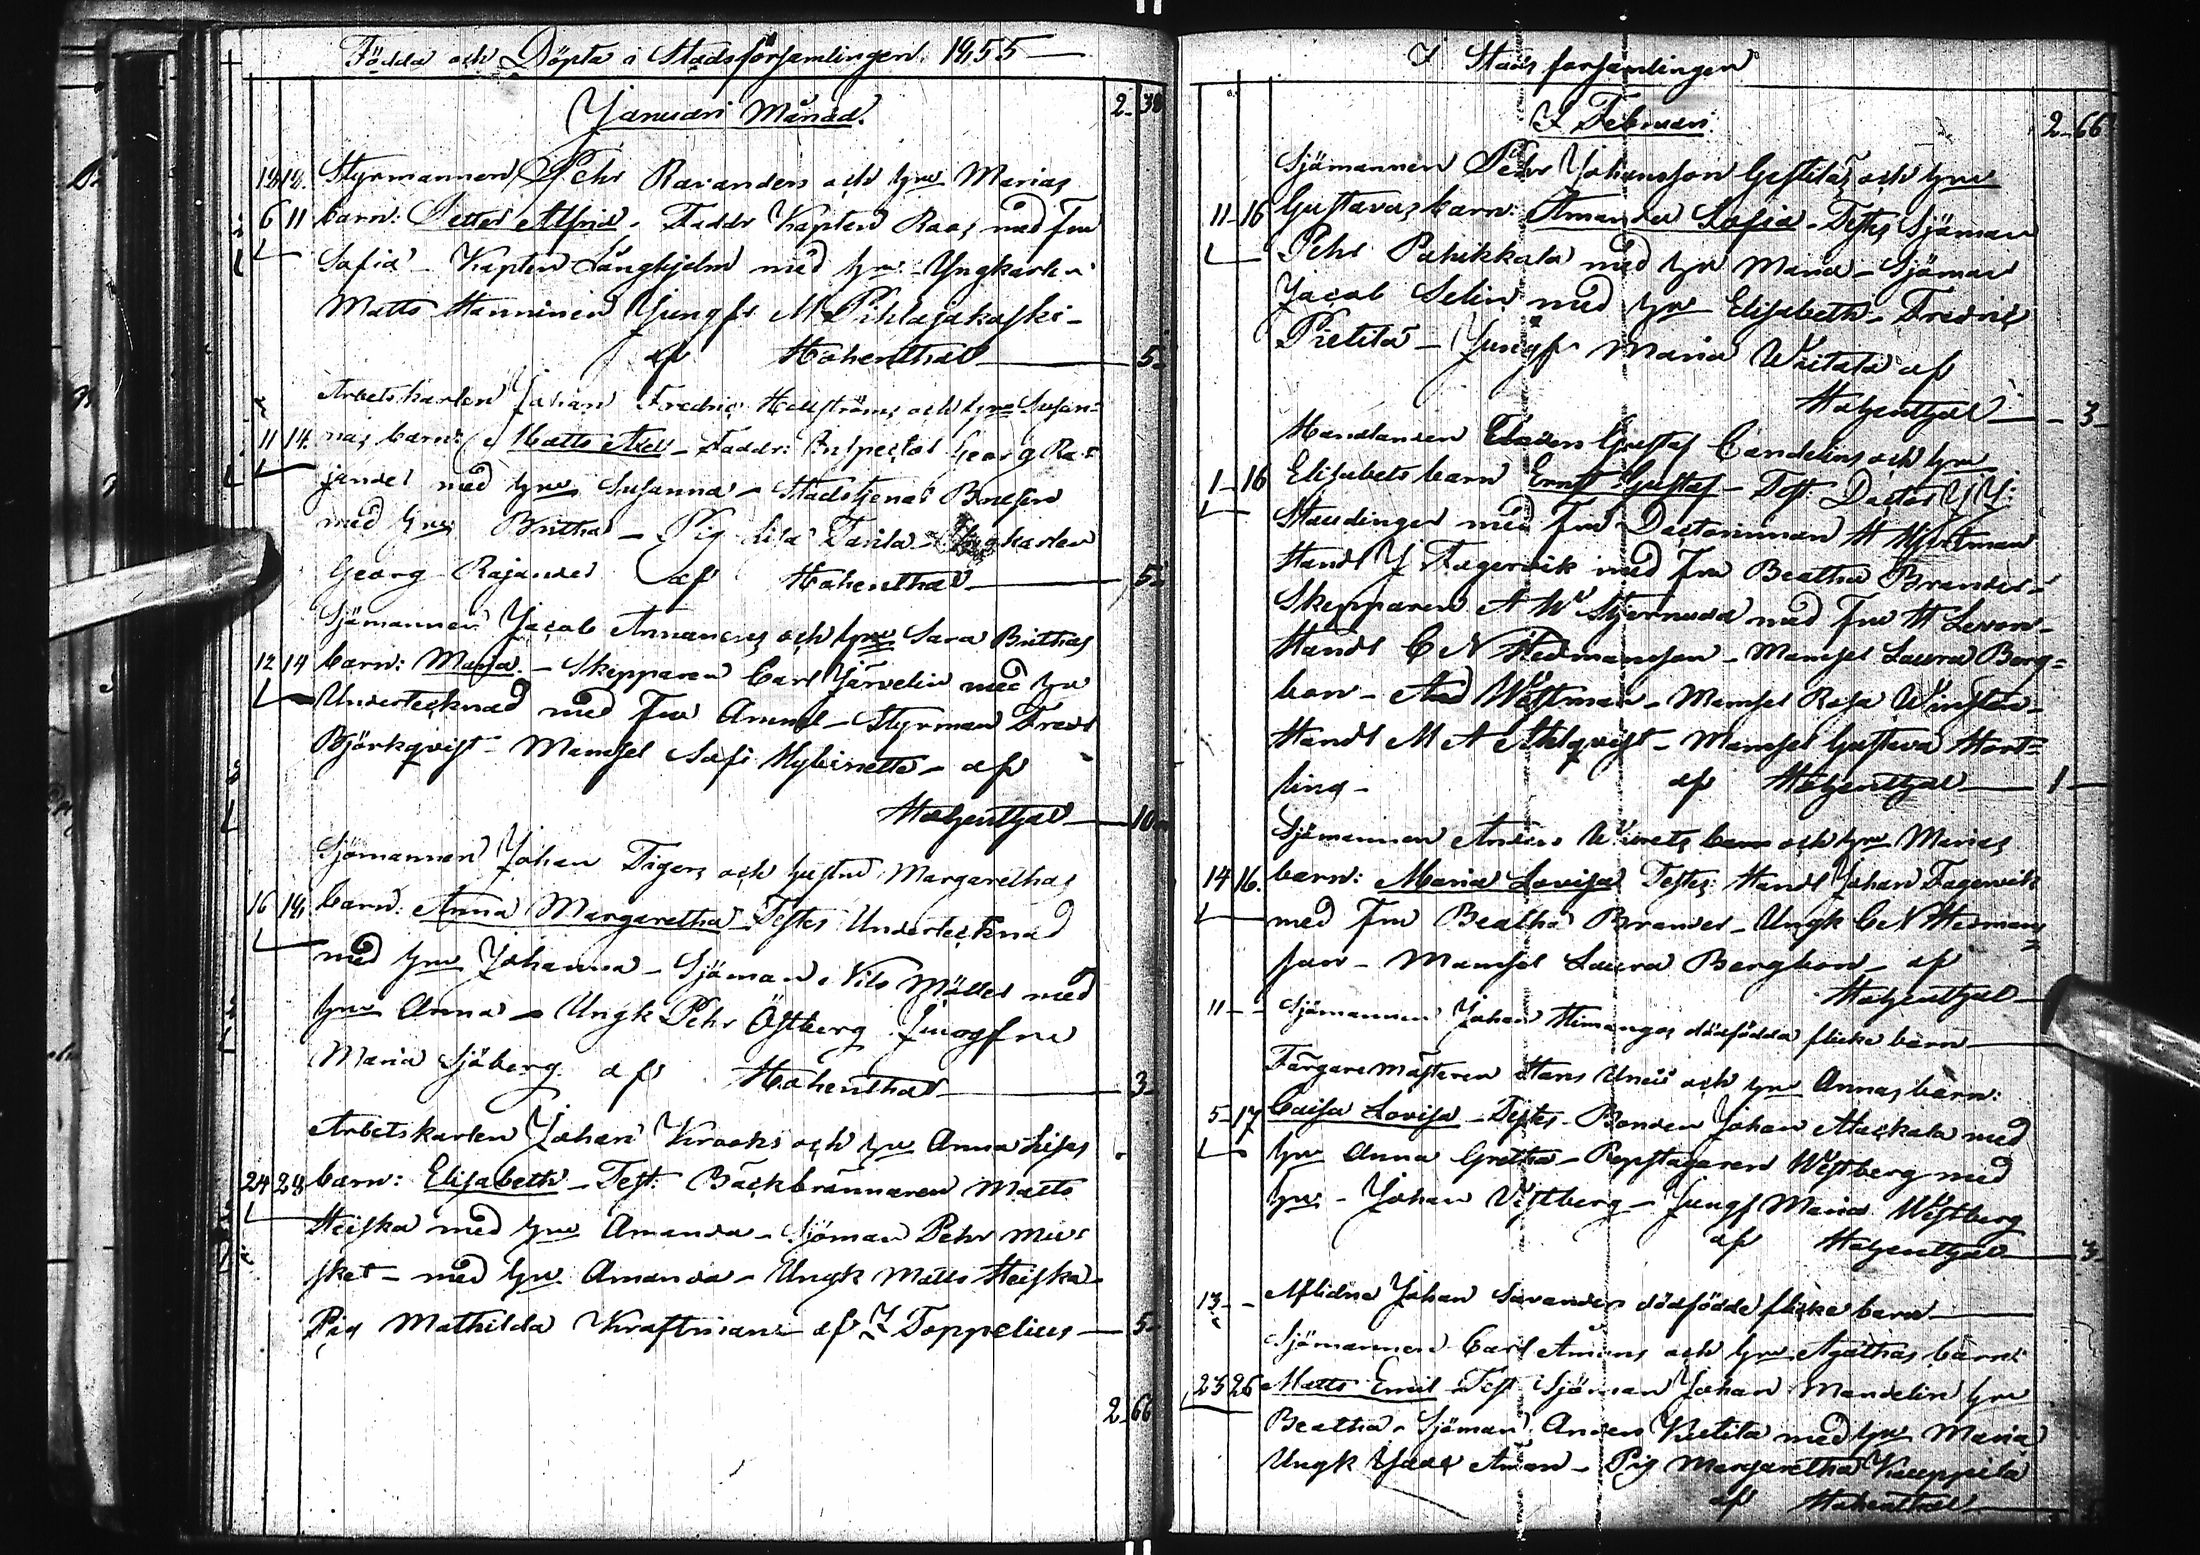 Födda och Döpta i Stadsförsamlingen 1855
Januari Månad.
2 38
Styrmannen Pehr Ravanders och hru Marias
6 11 barn: Petter Alfrid. Faddr Kapten Roos med fru
Sofia - Kapten Långhjelm med hru - Yngkarlen
Matts Hanninen Jungfr M Pihlajakoski -
af Hohenthal 5
Arbetskarlen Johan Fredric Hellströms och hru Susan=
11 14 nas barn: Matts Axel - Faddr: Inspector Georg Ra=
jander med hru Susanna - Stadstjenar
med hru Britha - Pig Lisa
Georg Rajander af Hohenthal 5
Sjömannen Jacob Annanens och hru Sara Brithas
12 14 barn: Maria. - Skepparen Carl Järvelin med hru
Undertecknad med fru Ammel - Styrman Fredr
Björkqvist - Mamsel Sofi - af
Hohenthal 10
Sjömannen Johan Tigers och hustru Margarethas
16 18 barn: Anna Margaretha Testes Undertecknad
med hru Johanna - Sjöman Nils Möller med
hru Anna - Ungk Pehr Östberg Jungfru
Maria Sjöberg af Hohenthal 3
Arbetskarlen Johan Krooks och hru Anna Lisas
24 28 barn: Elisabeth - Test: Bäckbrännaren Matts
Heiska med hru Amanda - Sjöman Pehr Mus
ket - med hru Amanda - Ungk Matts Heiska
Pig Mathilda Kraftman af Z Toppelius 5
2 66
I Stads forsamlingen
I Februari
2 66
Sjömannen Pehr Johansson Gestilas och hru
11 16 Gustavas barn: Amanda Sofia - Testes Sjöman
Pehr Pahikkala med hru Maria - Sjöman
Jacob Selin med hru Elisabeth - Fredric
Pietila - Jungfr Maria Wiitala af
Hohenthal 3
Handlanden Gustaf Candelins och hru
1 16 Elisabets barn Ernst Gustaf - Test: Doctor J J
Staudinger med fru Doctorinnan H Hjertman
Handl J Fagervik med fru Beatha Brander -
Skepparen A W Stjernudd med fru H Leven -
Handl C N Hedmanson - Mamsel Laura Berg=
bon - And Wästman - Mamsel Rosa Winsten -
Handl M A Ahlqvist - Mamsel Gustava Hort=
ling - af Hohenthal 1
Sjömannen Anders barn och hru Marias
14 16. barn: Maria Lovisa Testes: Handl Johan Fagervik
med fru Beatha Brander - Ungk C N Hedman=
son - Mamsel Laura Bergbon - af
Hohenthal
11 - Sjömannen Johan Himangos dödfödda flicke barn
Färgaremästeren Hans och hru Annas barn:
5 17 Caisa Lovisa - Testes - Bonden Johan med
hru Anna Gretha - Repslagaren Westberg med
hru - Johan Vestberg - Jungf Maria Westberg
af Hohenthal 3
13 - Aflidna Johan Savanders dödfödde flicke barn
Sjömannen Carl Åmans och hru Agathas barn:
23 26 Matts Emil Test Sjöman Johan Mandelin hru
Beatha - Sjöman Anders Kietila med hru Maria
Ungk Åman - Pig Margaretha Kauppila
af Hohenthal